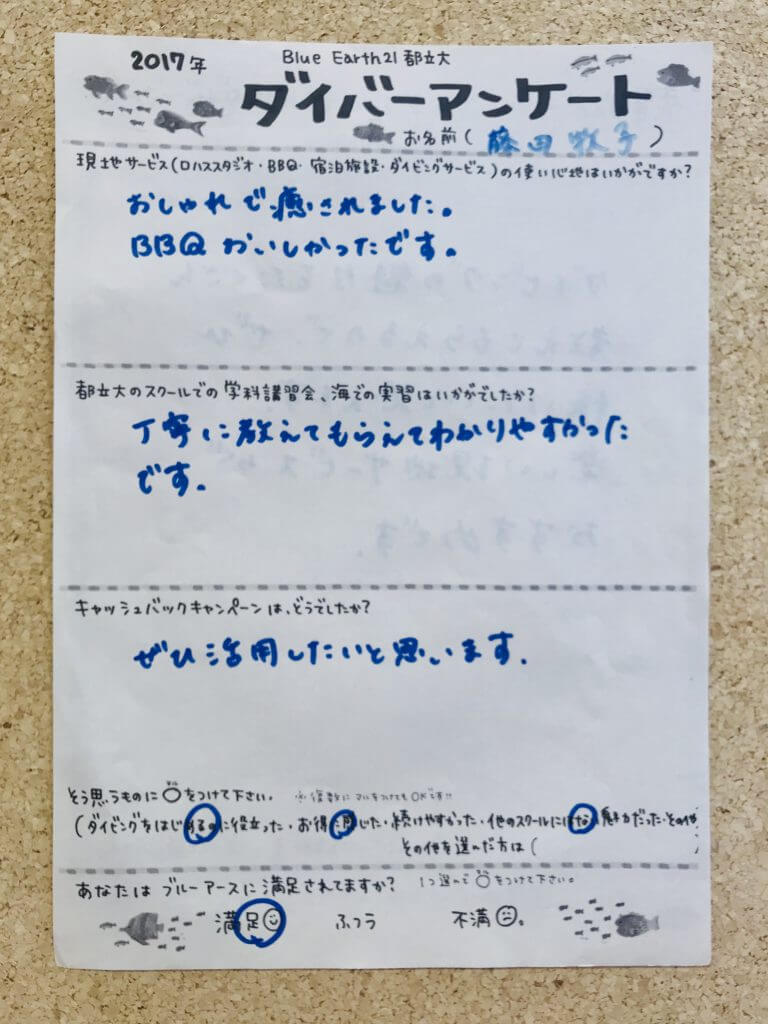 2017年
Blue Earth21 都立大
ダイバーアンケート
お名前(藤田牧子)
現地サービス(ロハススタジオ・BBQ・宿泊施設・ダイビングサービス)の使い心地はいかがですか?
おしゃれで癒されました。
BBQ おいしかったです。
都立大のスクールでの学科講習会、海での実習はいかがでしたか?
丁寧に教えてもらえてわかりやすかった
です。
キャッシュバックキャンペーンは、どうでしたか?
ぜひ活用したいと思います.
そう思うものに○をつけて下さい. ※複数にマルをつけてもOKです!!
(ダイビングをはじめるのに役立った・お得に感じた・続けやすかった・他のスクールにはない魅力だった・その他
その他を選んだ方は( )
あなたは ブルーアースに満足されてますか? 1つ選んで○をつけて下さい。
満足 ふつう 不満。